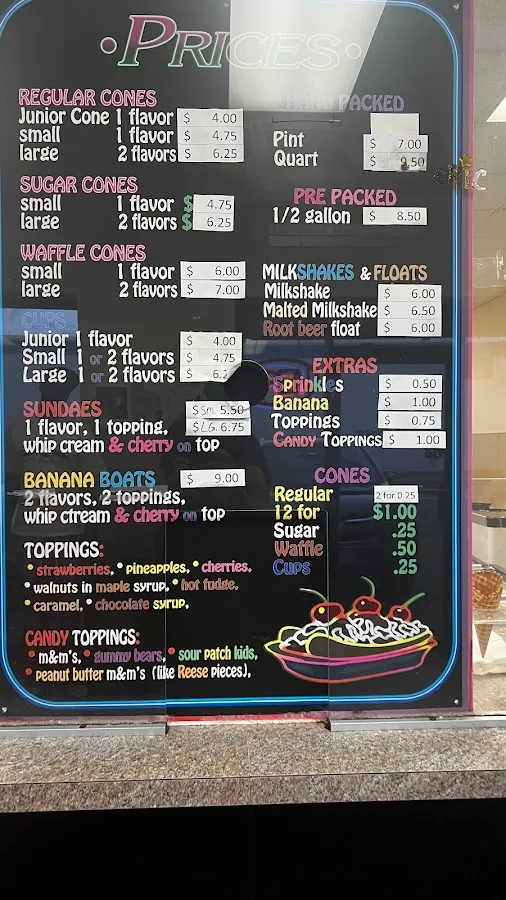 PRICES
REGULAR CONES
Junior Cone 1 flavor $ 4.00
small 1 flavor $ 4.75
large 2 flavors $ 6.25
SUGAR CONES
small 1 flavor $ 4.75
large 2 flavors $ 6.25
WAFFLE CONES
small 1 flavor $ 6.00
large 2 flavors $ 7.00
CUPS
Junior 1 flavor $ 4.00
Small 1 or 2 flavors $ 4.75
Large 1 or 2 flavors $
SUNDAES $Sm. 5.50
1 flavor, 1 topping, $LG. 6.75
whip cream & cherry on top
BANANA BOATS $ 9.00
2 flavors, 2 toppings,
whip ctream & cherry on top
TOPPINGS:
• strawberries, • pineapples, • cherries,
• walnuts in maple syrup, • hot fudge,
• caramel, • chocolate syrup,
CANDY TOPPINGS:
• m&m's, • gummy bears, • sour patch kids,
• peanut butter m&m's (like Reese pieces),
HAND PACKED
Pint $ 7.00
Quart $ 9.50
PRE PACKED
1/2 gallon $ 8.50
MILKSHAKES & FLOATS
Milkshake $ 6.00
Malted Milkshake $ 6.50
Root beer float $ 6.00
EXTRAS
Sprinkles $ 0.50
Banana $ 1.00
Toppings $ 0.75
CANDY TOPPINGS $ 1.00
CONES
Regular 2 for 0.25
12 for $1.00
Sugar .25
Waffle .50
Cups .25